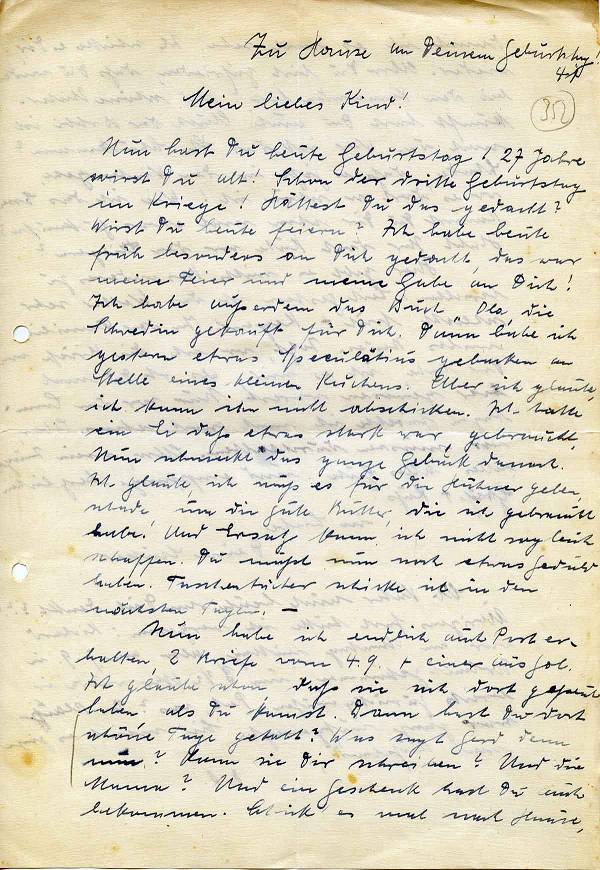 Zu Hause an Deinem Geburtstag!
352
Mein liebes Kind!
Nun hast Du heute Geburtstag! 27 Jahre
wirst Du alt! Schon der dritte Geburtstag
im Kriege! Hättest Du das gedacht?
Wirst Du heute feiern? Ich habe heute
früh besonders an Dich gedacht, das war
meine Feier und meine Gabe an Dich!
Ich habe außerdem das Buch Ola, die
Schwedin gekauft für Dich. Dann habe ich
gestern etwas Speculatius gebacken an
Stelle eines kleinen Kuchens. Aber ich glaube,
ich kann ihn nicht abschicken. Ich hatte
ein Ei daß etwas stark war, gebraucht,
Nun schmeckt das ganze Gebäck danach.
Ich glaube, ich muß es für die Hühner geben,
schade, um die gute Butter, die ich gebraucht
habe! Und Ersatz kann ich nicht so gleich
schaffen. Du mußt nun noch etwas Geduld
haben. Taschentücher schicke ich in den
nächsten Tagen. —
Nun habe ich endlich auch Post er-
halten, 2 Briefe vom 4.9. + einer aus
Ich glaube schon, daß sie sich dort gefreut
haben, als Du kamst. Dann hast Du dort
schöne Tage gehabt? Was sagt Gerd denn
nun? Kann sie Dir schreiben? Und die
Mama? Und ein Geschenk hast Du auch
bekommen. Schick es mal nach Hause,